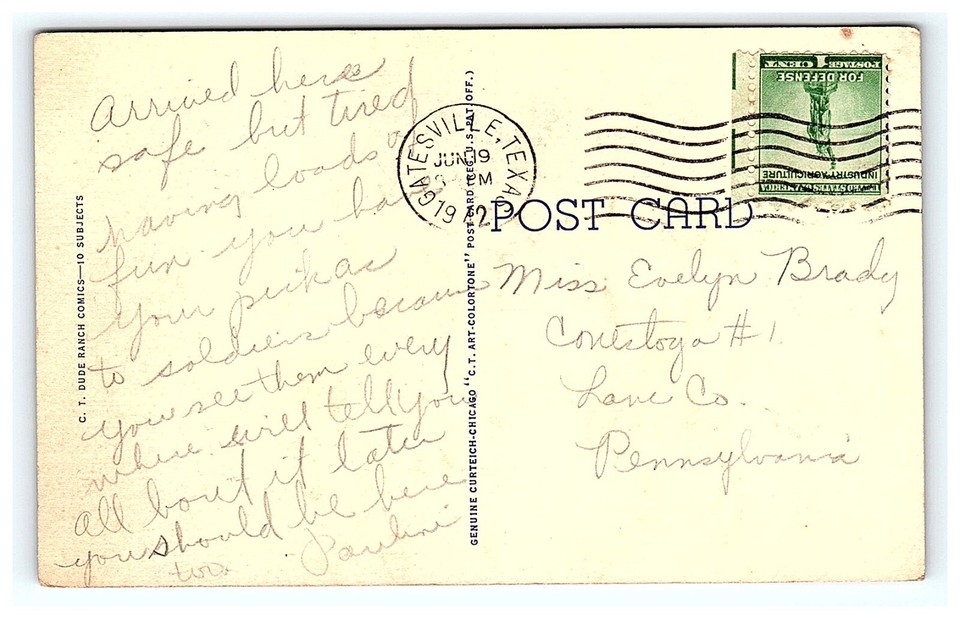 Arrived here
safe but tired
having loads of
fun you ha
your pick as
to soldiers because
you see them every
where will tell you
all bout it later
you should be here
too. Pauline
C. T. DUDE RANCH COMICS—10 SUBJECTS
GENUINE CURTEICH-CHICAGO "C.T. ART-COLORTONE" POST CARD (REG. U.S. PAT. OFF.)
GATESVILLE, TEXAS
JUN 19
M
1942
POST CARD
POSTAGE 1 CENT
FOR DEFENSE
INDUSTRY AGRICULTURE
UNITED STATES OF AMERICA
Miss Evelyn Brady
Conestoga #1.
Lanc Co.
Pennsylvania